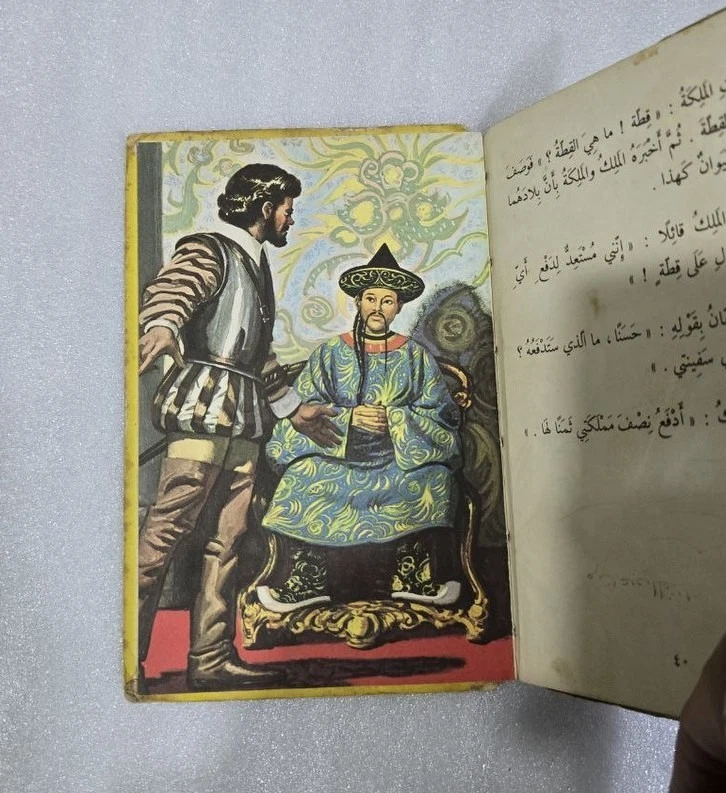 المَلِكَةُ : « قِطَّة ! ما هِيَ القِطَّةُ ؟ » فَوَصَفَ
القِطَّةَ . ثُمَّ أَخْبَرَهُ المَلِكُ والمَلِكَةُ بِأَنَّ بِلادَهُما
كَهذا .
المَلِكُ قائِلًا : « إِنَّني مُسْتَعِدٌّ لِدَفْعِ أَيِّ
عَلى قِطَّةٍ ! »
بِقَوْلِهِ : « حَسَنًا ، ما الَّذي سَتَدْفَعُهُ ؟
سَفينَتي . »
: « أَدْفَعُ نِصْفَ مَمْلَكَتي ثَمَنًا لَها . »
٤٠